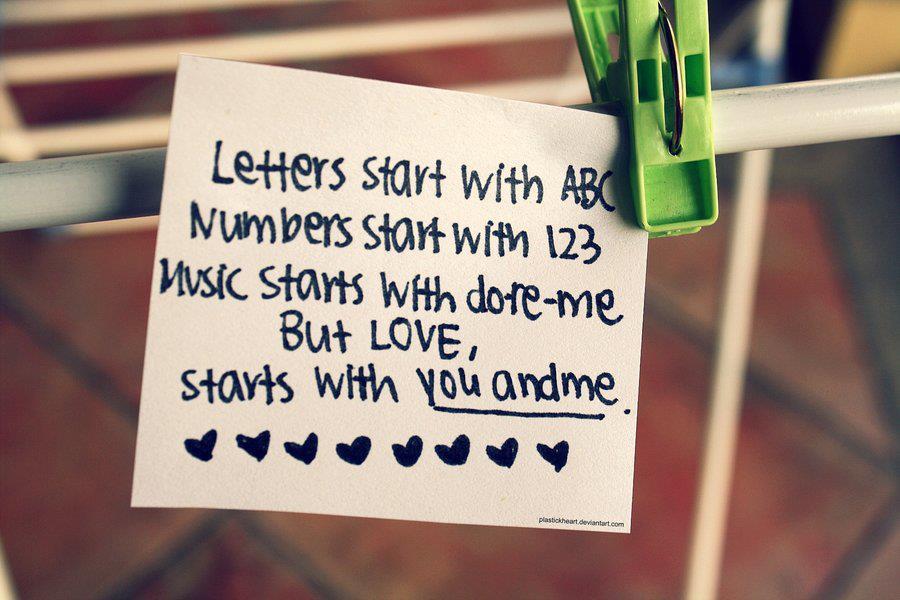 Letters start with ABC
Numbers start with 123
Music starts with do-re-me
But LOVE,
starts with you and me.
plastickheart.deviantart.com